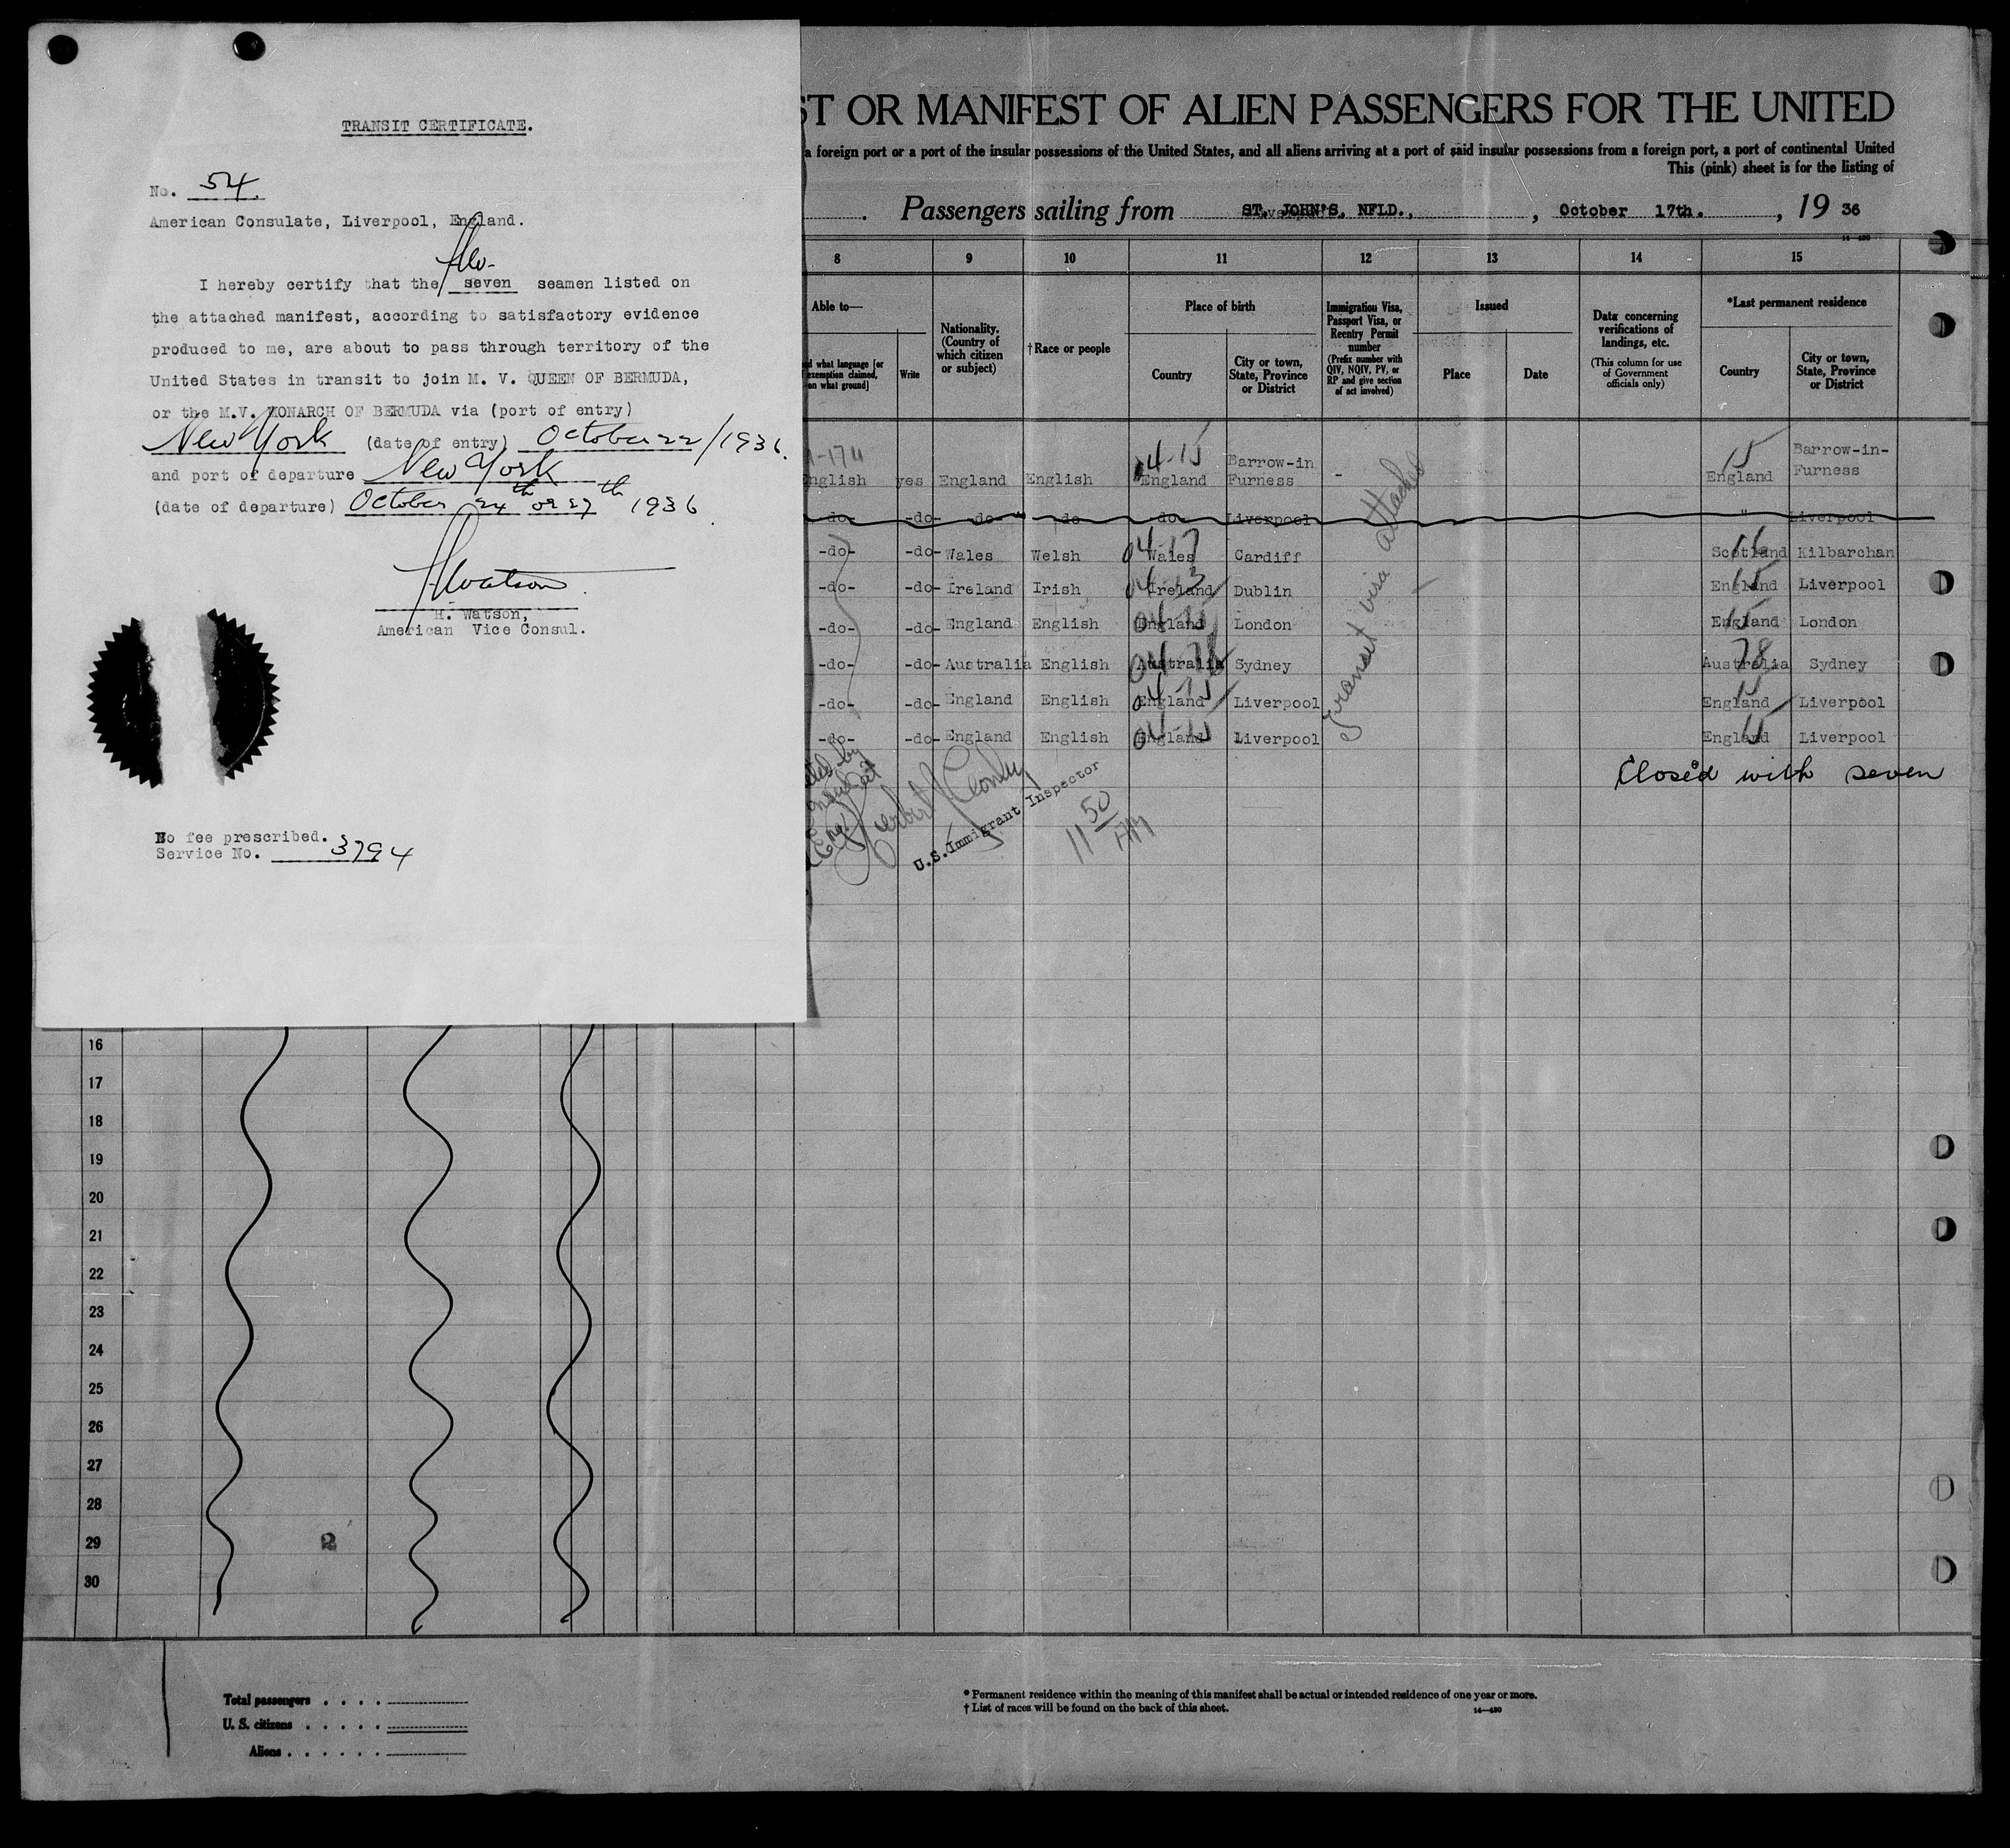 TRANSIT CERTIFICATE.
No. 54.
American Consulate, Liverpool, England.
I hereby certify that the seven seamen listed on
the attached manifest, according to satisfactory evidence
produced to me, are about to pass through territory of the
United States in transit to join M. V. QUEEN OF BERMUDA,
or the M.V. MONARCH OF BERMUDA via (port of entry)
New York (date of entry) October 22/1936.
and port of departure New York
(date of departure) October 24th or 27th 1936.
H. Watson,
American Vice Consul.
No fee prescribed.
Service No. 3794
ST OR MANIFEST OF ALIEN PASSENGERS FOR THE UNITED
a foreign port or a port of the insular possessions of the United States, and all aliens arriving at a port of said insular possessions from a foreign port, a port of continental United
This (pink) sheet is for the listing of
Passengers sailing from ST. JOHN'S, NFLD., October 17th., 19 36
8 9 10 11 12 13 14 15
Able to—
what language [or exemption claimed, on what ground]
Write
Nationality. (Country of which citizen or subject)
†Race or people
Place of birth
Country
City or town, State, Province or District
Immigration Visa, Passport Visa, or Reentry Permit number
(Prefix number with QIV, NQIV, PV, or RP and give section of act involved)
Issued
Place
Date
Data concerning verifications of landings, etc.
(This column for use of Government officials only)
*Last permanent residence
Country
City or town, State, Province or District
English yes England English 04-15 England Barrow-in Furness - 15 England Barrow-in-Furness
-do- -do- -do- do do Liverpool " Liverpool
-do- -do- Wales Welsh 04-17 Wales Cardiff 16 Scotland Kilbarchan
-do- -do- Ireland Irish 04-13 Ireland Dublin 15 England Liverpool
-do- -do- England English 04-15 England London 15 England London
-do- -do- Australia English 04-78 Australia Sydney 78 Australia Sydney
-do- -do- England English 04-15 England Liverpool 15 England Liverpool
-do- -do- England English 04-15 England Liverpool 15 England Liverpool
Transit visa attached
Closed with seven
U.S. Immigrant Inspector
11 50 AM
16
17
18
19
20
21
22
23
24
25
26
27
28
29 2
30
Total passengers
U. S. citizens
Aliens
* Permanent residence within the meaning of this manifest shall be actual or intended residence of one year or more.
† List of races will be found on the back of this sheet.
14—430